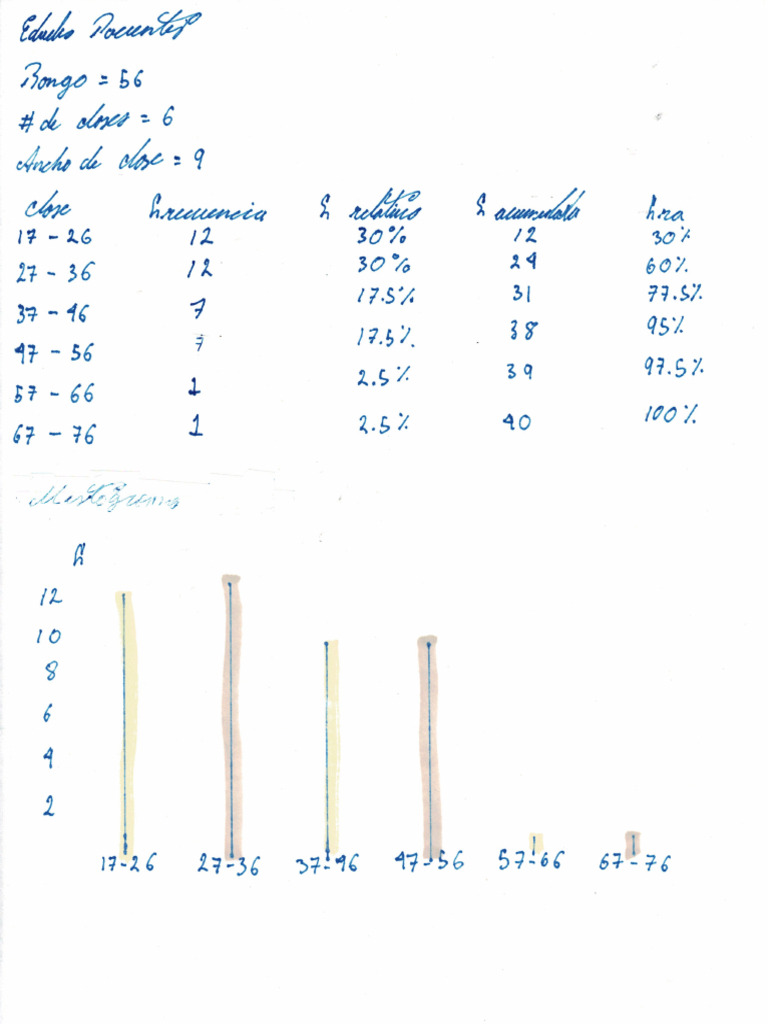 Edades Pacientes
Rango = 56
# de clases = 6
Ancho de clase = 9
clase Frecuencia F relativa F acumulada Fra
17 - 26 12 30% 12 30%
27 - 36 12 30% 24 60%
37 - 46 7 17.5% 31 77.5%
47 - 56 7 17.5% 38 95%
57 - 66 1 2.5% 39 97.5%
67 - 76 1 2.5% 40 100%
Histograma
F
12
10
8
6
4
2
17-26 27-36 37-46 47-56 57-66 67-76